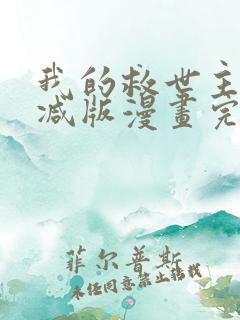 我的救世主
减版漫畫完
菲尔普斯
未经同意禁止转载